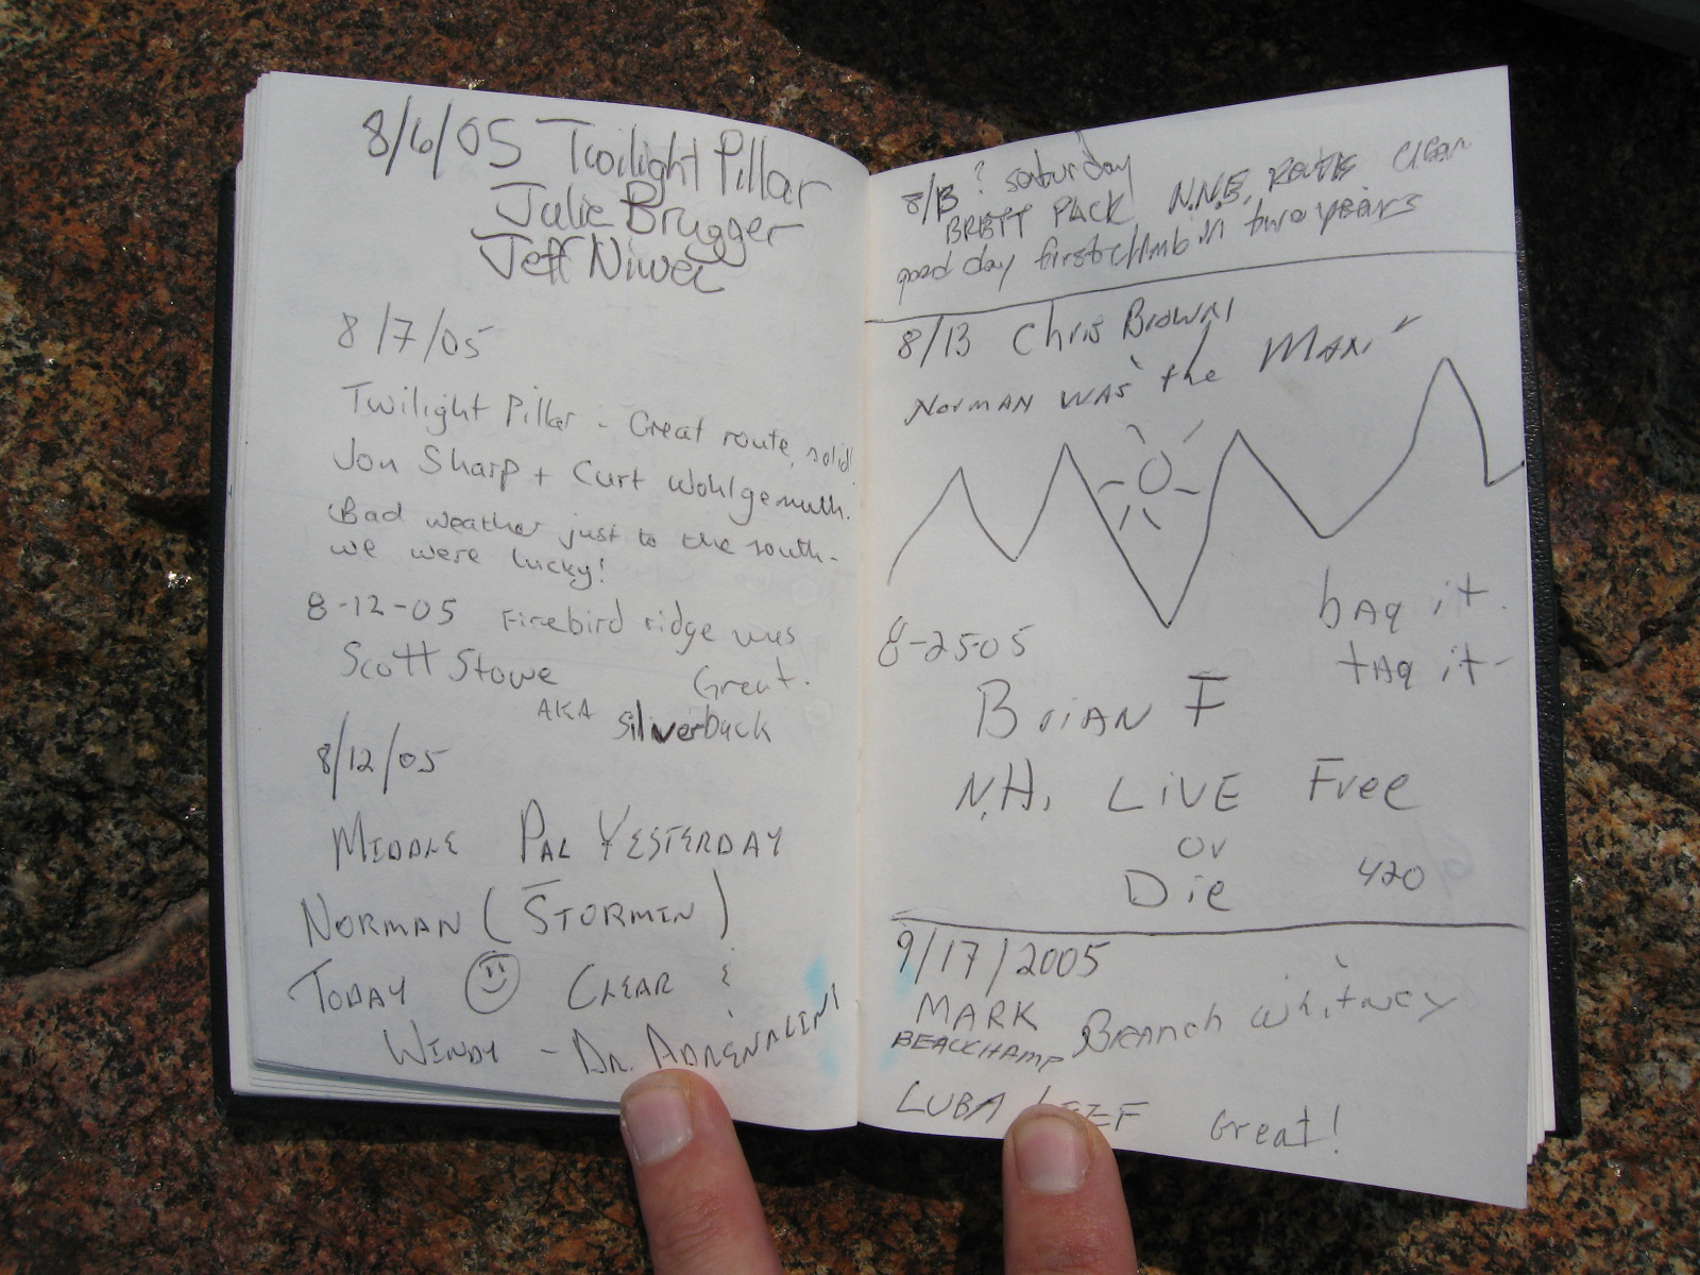 8/6/05 Twilight Pillar
Julie Brugger
Jeff Niwei
8/7/05
Twilight Pillar - Great route, solid
Jon Sharp + Curt Wohlgemuth.
Bad weather just to the south-
we were lucky!
8-12-05 Firebird ridge was
Scott Stowe Great.
AKA Silverback
8/12/05
MIDDLE PAL YESTERDAY
NORMAN (STORMIN)
TODAY CLEAR &
WINDY - DR. ADRENALINE
8/13 ? saturday
BRETT PACK N.N.E. ROUTE Clean
good day first climb in two years
8/13 Chris Brown
NorMAN WAS "the MAN"
bAg it.
tAg it-
8-25-05
BriAN F
N.H. LiVE Free
or
Die 420
9/17/2005
MARK
BEAUCHAMP Branch Whitney
LUBA Great!